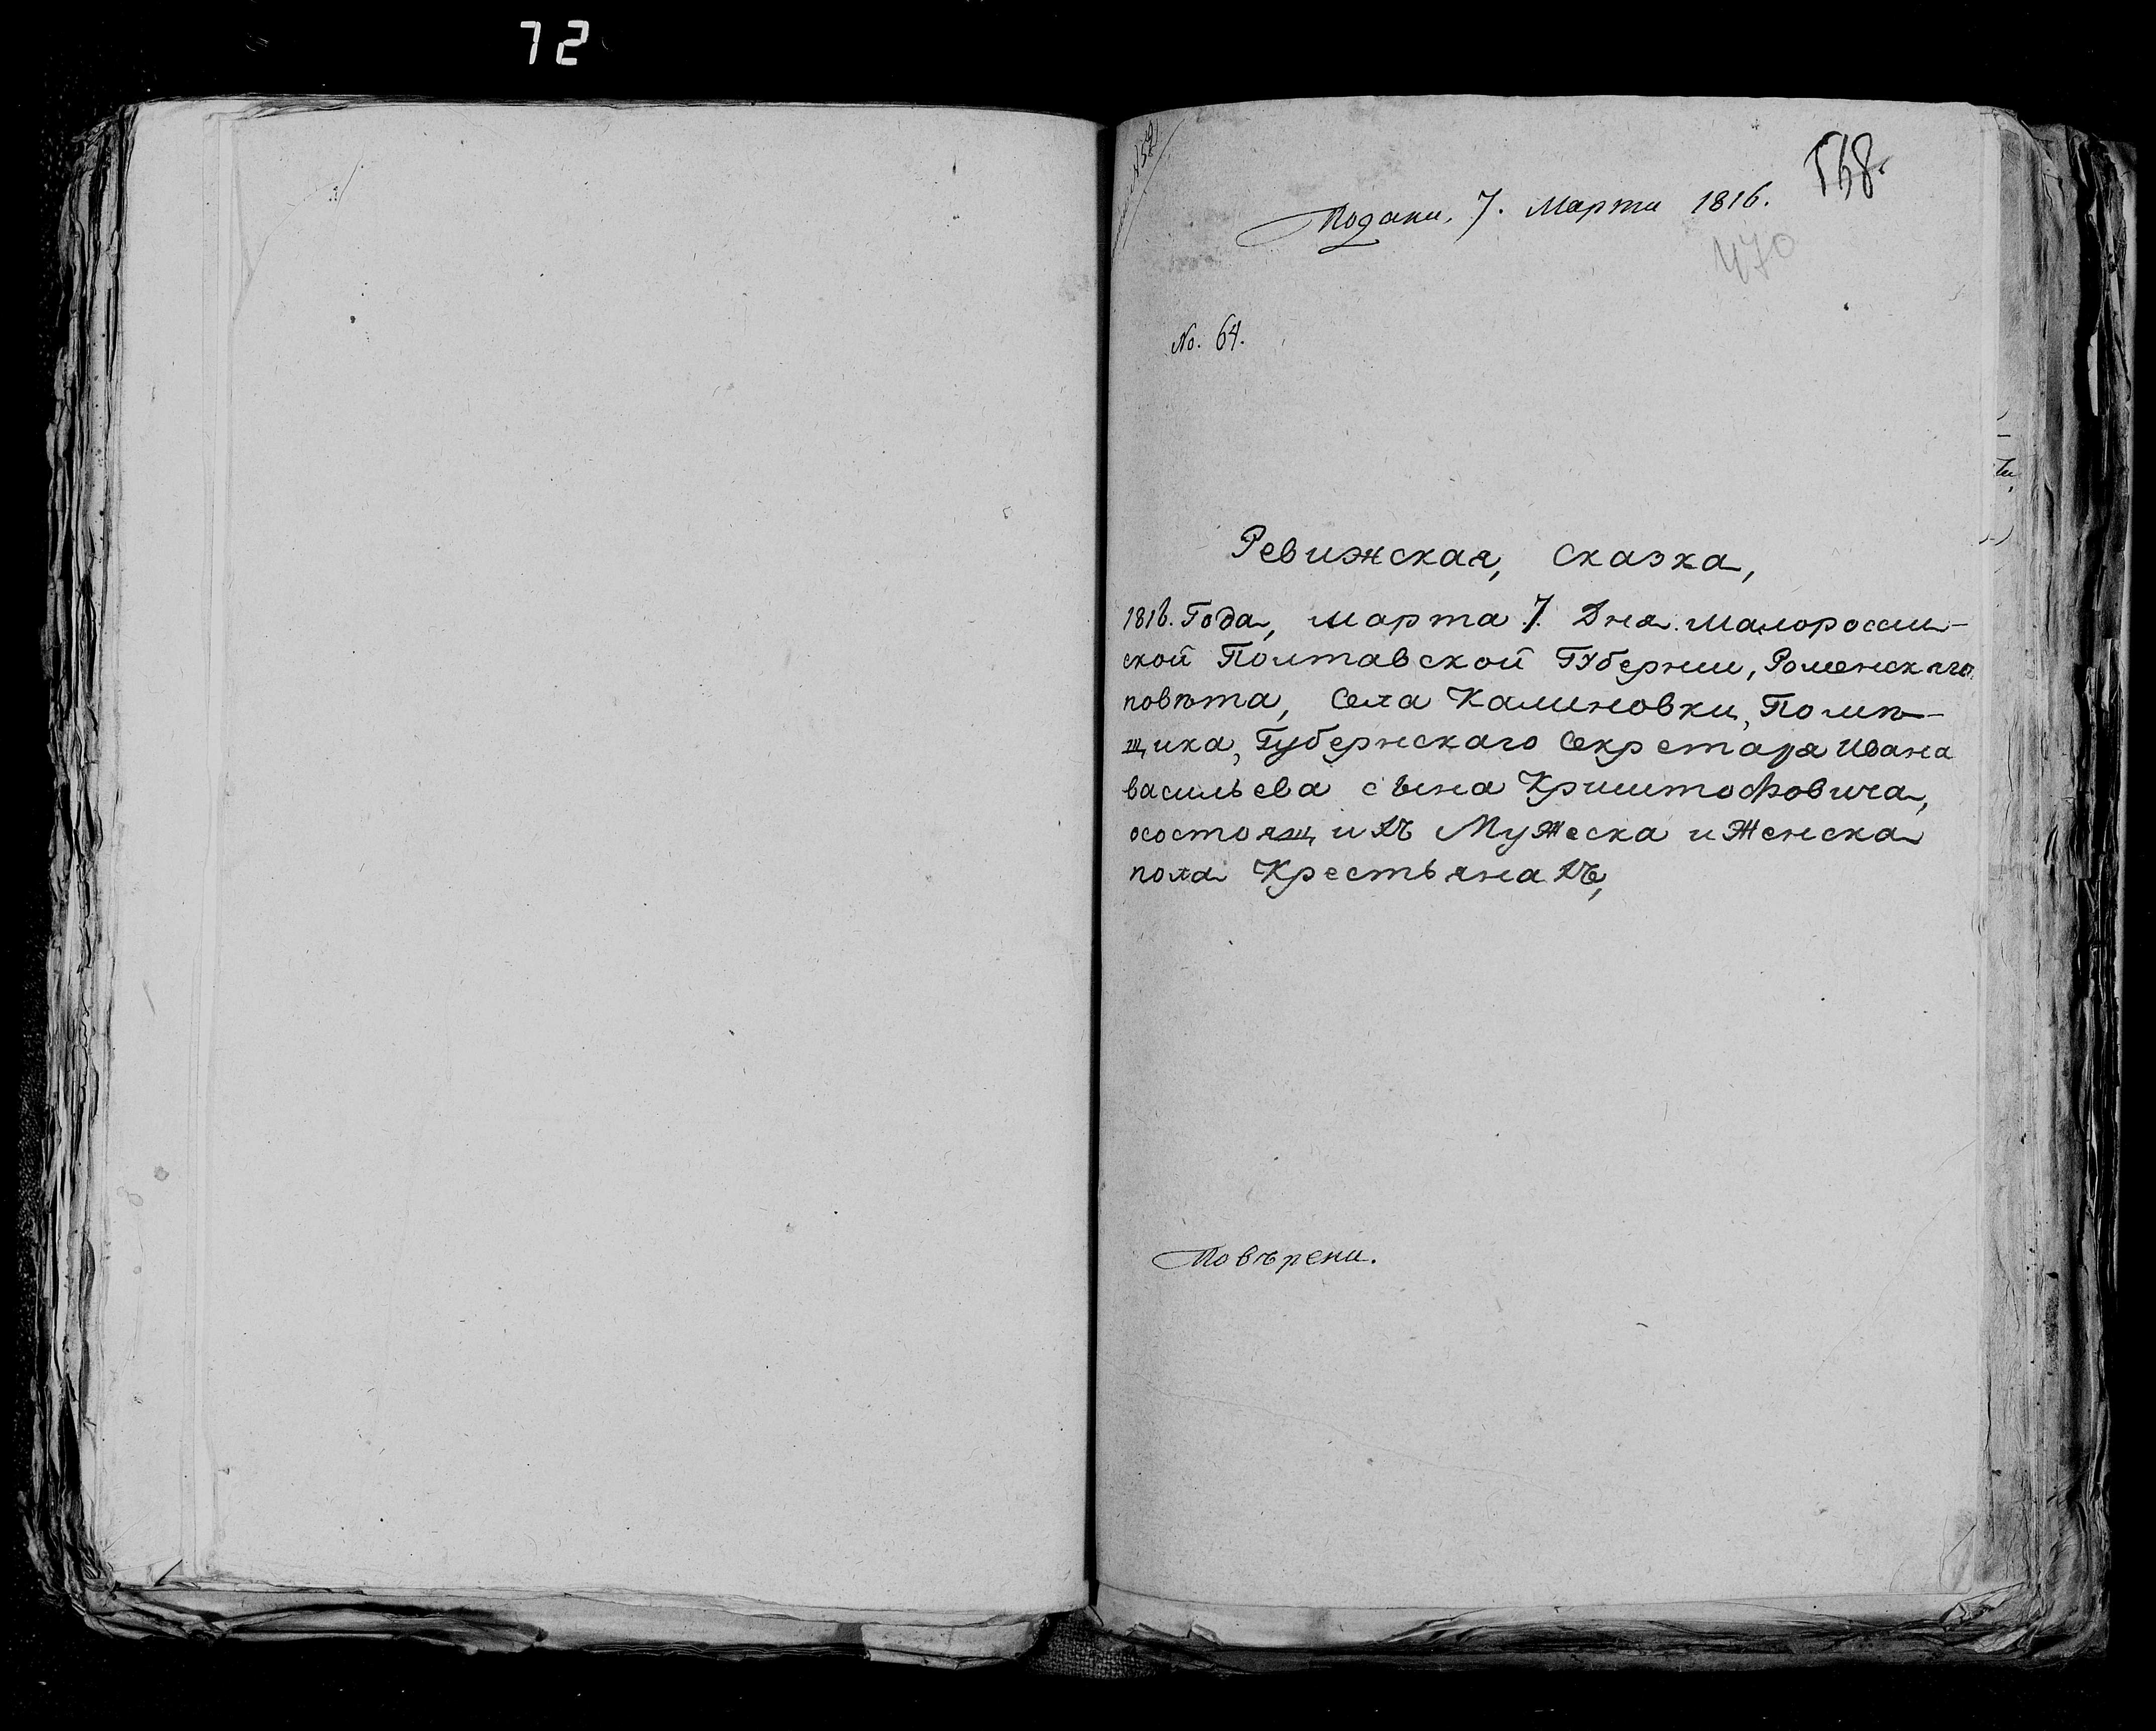 72
№ 52
568.
Подани, 7. Марта 1816.
470
No. 64.
Ревижская, сказка,
1816. Года, марта 7. Дня. малоросси-
ской Полтавской Губернии, Роменскаго
повѣта, Села Калиновки, Помѣ-
щика, Губернскаго Секретаря Ивана
васильева сына Криштофовича,
осостоящихъ Мужеска и Женска
пола Крестьянахъ,
Повѣрени.